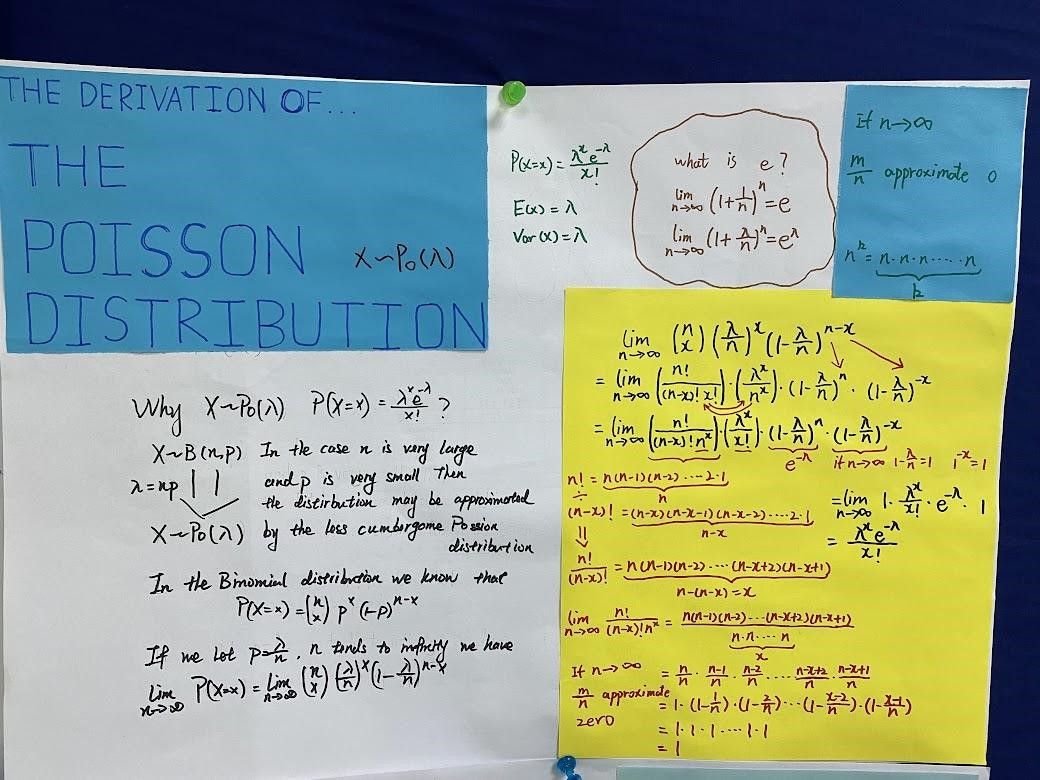 THE DERIVATION OF...
THE
POISSON
DISTRIBUTION
X~Po(λ)
P(X=x) = λˣe^-λ / x!
E(x) = λ
Var(x) = λ
what is e?
lim n→∞ (1+1/n)ⁿ = e
lim n→∞ (1+λ/n)ⁿ = e^λ
If n→∞
m/n approximate 0
n^k = n·n·n·····n
k
Why X~Po(λ) P(X=x) = λˣe^-λ / x! ?
X~B(n,p) In the case n is very large
λ=np and p is very small Then
the distirbution may be approximated
X~Po(λ) by the less cumbergome Possion
distribution
In the Binomial distribution we know that
P(X=x) = (n x) pˣ (1-p)^n-x
If we let p=λ/n, n tends to infinity we have
Lim n→∞ P(X=x) = Lim n→∞ (n x) (λ/n)ˣ (1-λ/n)^n-x
lim n→∞ (n x) (λ/n)ˣ (1-λ/n)^n-x
= lim n→∞ (n!/(n-x)!x!)·(λˣ/nˣ)·(1-λ/n)ⁿ·(1-λ/n)^-x
= lim n→∞ (n!/(n-x)!nˣ)·(λˣ/x!)·(1-λ/n)ⁿ·(1-λ/n)^-x
e^-λ if n→∞ 1-λ/n=1 1^-x=1
= lim n→∞ 1·λˣ/x!·e^-λ·1
= λˣe^-λ / x!
n! = n(n-1)(n-2)·····2·1
÷ n
(n-x)! = (n-x)(n-x-1)(n-x-2)·····2·1
n-x
n!/(n-x)! = n(n-1)(n-2)·····(n-x+2)(n-x+1)
n-(n-x)=x
lim n→∞ n!/(n-x)!nˣ = n(n-1)(n-2)····(n-x+2)(n-x+1) / n·n·····n
x
If n→∞ = n/n · n-1/n · n-2/n ···· n-x+2/n · n-x+1/n
m/n approximate = 1·(1-1/n)·(1-2/n)···(1-x-2/n)·(1-x-1/n)
zero = 1·1·1····1·1
= 1